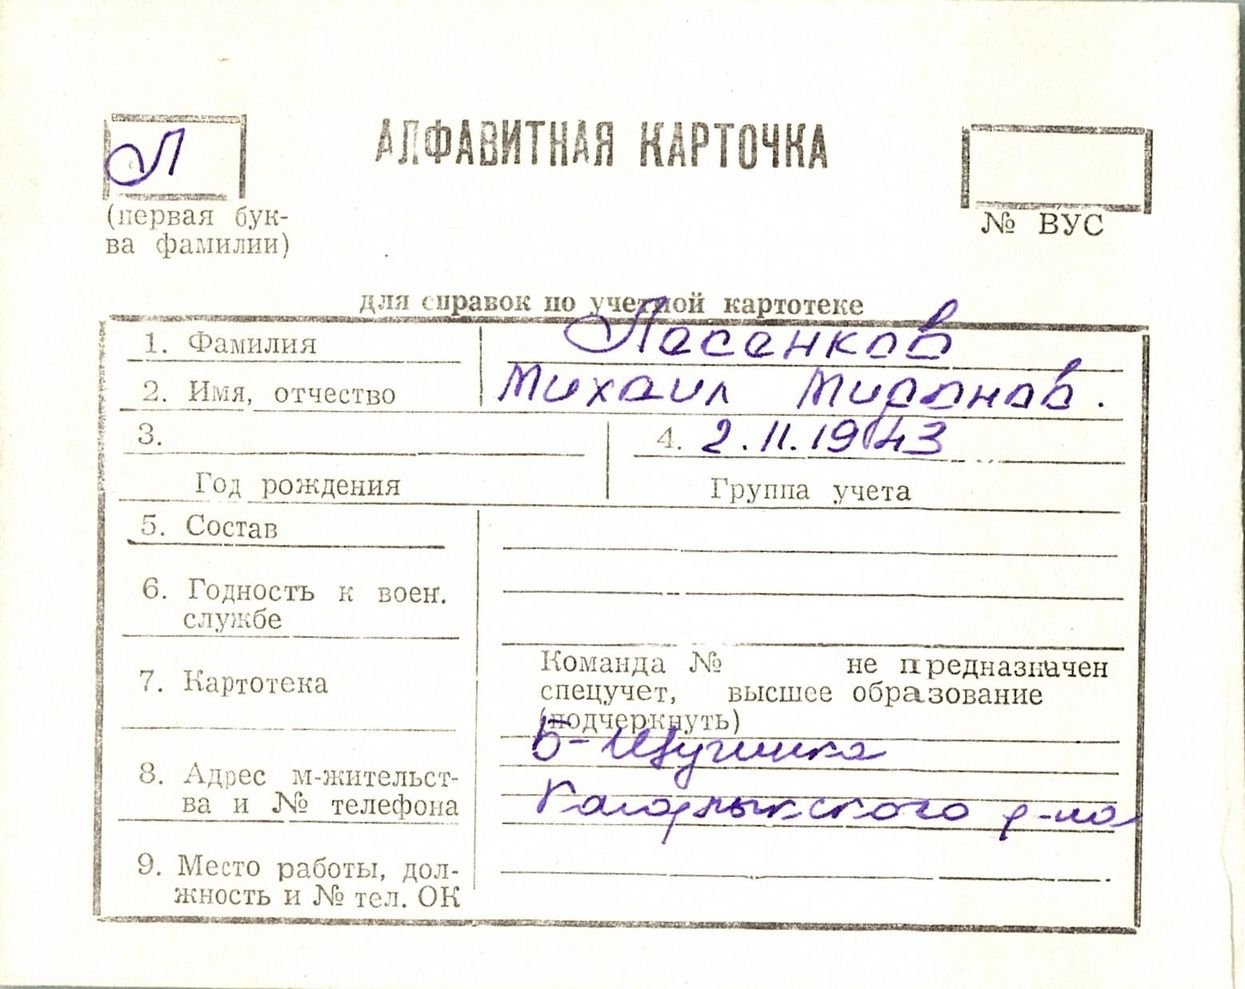 Л
АЛФАВИТНАЯ КАРТОЧКА
(первая бук-
ва фамилии)
№ ВУС
для справок по учетной картотеке
1. Фамилия Ласенков
2. Имя, отчество Михаил Миронов.
3.
4. 2.11.1943
Год рождения
Группа учета
5. Состав
6. Годность к воен.
службе
7. Картотека
Команда № не предназначен
спецучет, высшее образование
(подчеркнуть)
8. Адрес м-жительст-
ва и № телефона
Б-Щучинка
Кагарлыкского р-на
9. Место работы, дол-
жность и № тел. ОК